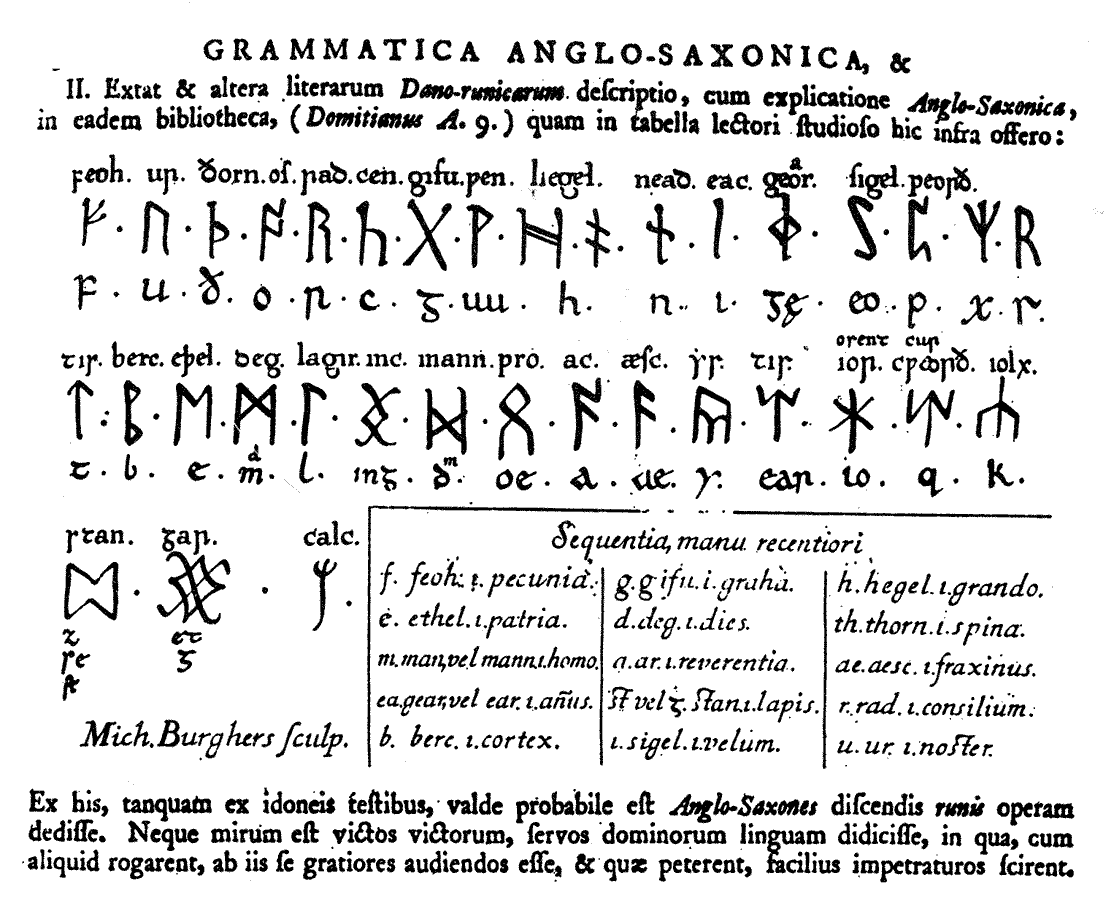 GRAMMATICA ANGLO-SAXONICA, &
II. Extat & altera literarum Dano-runicarum deſcriptio, cum explicatione Anglo-Saxonica,
in eadem bibliotheca, (Domitianus A. 9.) quam in tabella lectori ſtudioſo hic infra offero:
feoh. ur. ðorn. oſ. rad. cen. gifu. pen. hegel. nead. eac. gear. ſigel. peorð.
a
ᚠ · ᚢ · ᚦ · ᚩ · ᚱ · ᚳ · ᚷ · ᚹ · ᚻ · ᚾ · ᛁ · ᛄ · ᛋ · ᛈ · ᛉ · ᚱ
F · u · ð · o · r · c · g · uu · h. n. · ı · gę · eo · p · x · r.
orent cur
tir. berc. eþel. deg. lagır. mc. mann. pro. ac. æſc. ẏr. tir. ior. cpeorð. ıolx.
ᛏ · ᛒ · ᛖ · ᛗ · ᛚ · ᛝ · ᛞ · ᛟ · ᚪ · ᚫ · ᚣ · ᛠ · ᛡ · ᛢ · ᛣ
d m
t · b · e · m · l · ing · ð · oe · a · ae. y. ear. ıo · q · k.
rtan. gar. calc.
z et
ſe g
ſt
Sequentia, manu recentiori
f. feoh. ı. pecunia. g. gifu. i. graha. h. hegel. ı. grando.
e. ethel. ı. patria. d. deg. ı. dies. th. thorn. ı. spina.
m. man, vel mann. ı. homo. a. ar. ı. reverentia. ae. aesc. ı. fraxinus.
ea. gear, vel ear. ı. añus. ſt vel ʒ. ſtan. ı. lapis. r. rad. ı. consilium.
b. berc. ı. cortex. ı. sigel. ı. velum. u. ur. ı. noſter.
Mich. Burghers ſculp.
Ex his, tanquam ex idoneis teſtibus, valde probabile eſt Anglo-Saxones diſcendis runis operam
dediſſe. Neque mirum eſt victos victorum, ſervos dominorum linguam didiciſſe, in qua, cum
aliquid rogarent, ab iis ſe gratiores audiendos eſſe, & quæ peterent, facilius impetraturos ſcirent.